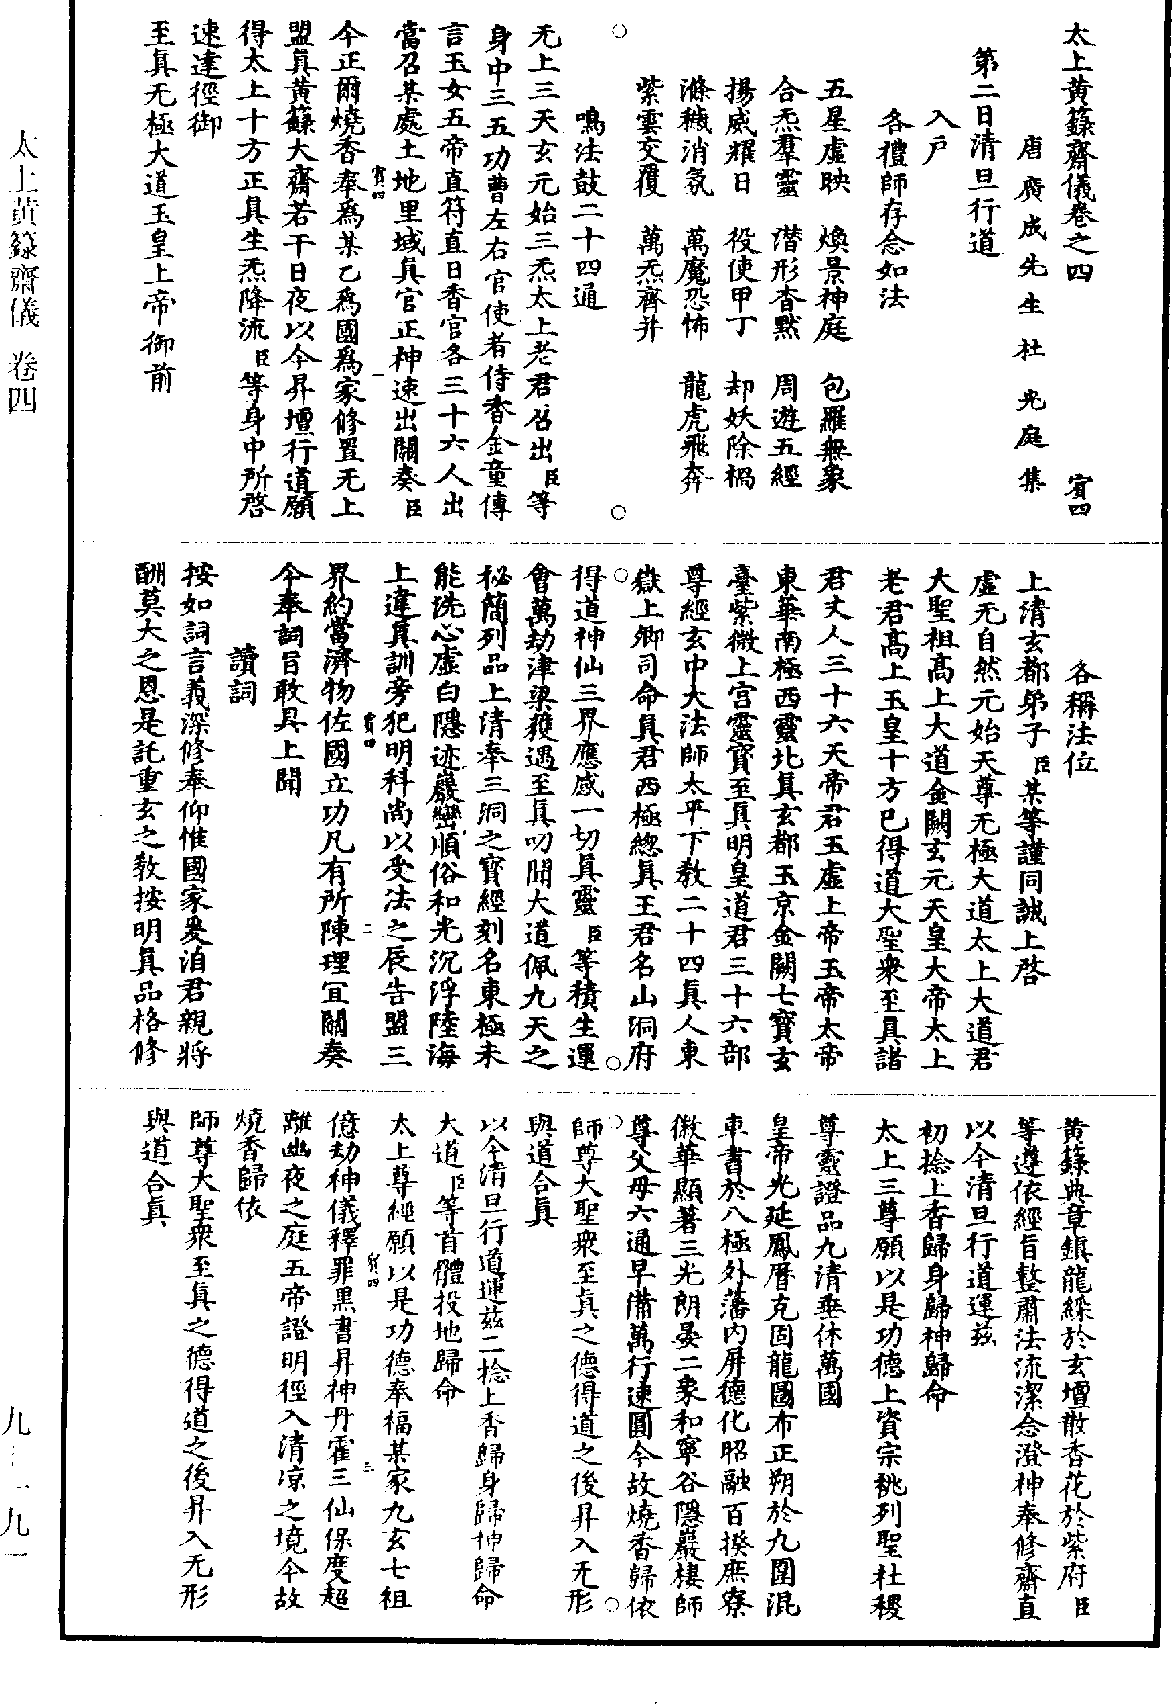 太上黃籙齋儀卷之四　　　宥四
唐廣成先生杜光庭集
第二日清旦行道
入戶
各禮師存念如法
五星虛映　煥景神庭　包羅無象
合炁羣靈　潛形杳默　周遊五經
揚威耀日　役使甲丁　却妖除禍
滌穢消氛　萬魔恐怖　龍虎飛奔
紫雲交覆　萬炁齊并
鳴法鼓二十四通
无上三天玄元始三炁太上老君召出臣等
身中三五功曹左右官使者侍香金童傳
言玉女五帝直符直日香官各三十六人出
當召某處土地里域真官正神速出關奏臣
今正爾燒香奉爲某乙爲國爲家修置无上
盟真黃籙大齋若干日夜以今昇壇行道願
得太上十方正真生炁降流臣等身中所啓
速達徑御
至真无極大道玉皇上帝御前
各稱法位
上清玄都弟子臣某等謹同誠上啓
虛无自然元始天尊无極大道太上大道君
大聖祖高上大道金闕玄元天皇大帝太上
老君高上玉皇十方已得道大聖衆至真諸
君丈人三十六天帝君玉虛上帝玉帝太帝
東華南極西靈北真玄都玉京金闕七寶玄
臺紫微上宮靈寶至真明皇道君三十六部
尊經玄中大法師太平下教二十四真人東
嶽上卿司命真君西極總真王君名山洞府
得道神仙三界應感一切真靈臣等積生運
會萬劫津梁獲遇至真叨聞大道佩九天之
祕簡列品上清奉三洞之寶經刻名東極未
能洗心虛白隱迹巖巒順俗和光沉浮陸海
上違真訓旁犯明科尚以受法之辰告盟三
界約當濟物佐國立功凡有所陳理宜關奏
今奉詞旨敢具上聞
讀詞
按如詞言義深修奉仰惟國家爰洎君親將
酬莫大之恩是託重玄之教按明真品格修
黃籙典章鎮龍綵於玄壇散香花於紫府臣
等遵依經旨整肅法流潔念澄神奉修齋直
以今清旦行道運茲
初捻上香歸身歸神歸命
太上三尊願以是功德上資宗祧列聖社稷
尊靈證品九清垂休萬國
皇帝光延鳳曆克固龍圖布正朔於九圍混
車書於八極外藩內屏德化昭融百揆庶寮
徽華顯著三光朗晏二象和寧谷隱巖棲師
尊父母六通早備萬行速圓今故燒香歸依
師尊大聖衆至真之德得道之後昇入无形
與道合真
以今清旦行道運茲二捻上香歸身歸神歸命
大道臣等首體投地歸命
太上尊經願以是功德奉福某家九玄七祖
億劫神儀釋罪黑書昇神丹霍三仙保度超
離幽夜之庭五帝證明徑入清凉之境今故
燒香歸依
師尊大聖衆至真之德得道之後昇入无形
與道合真
宥四　一
宥四　二
宥四　三
太上黃籙齋儀　卷四